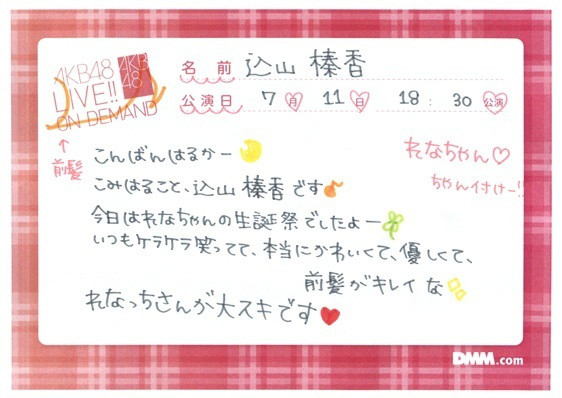 AKB48
LIVE!!
ON DEMAND
AKB
48
名前 込山 榛香
公演日 7月 11日 18:30公演
↑
前髪
こんばんはるかー
こみはること、込山榛香です♪
今日はれなちゃんの生誕祭でしたよー
いつもケラケラ笑ってて、本当にかわいくて、優しくて、
前髪がキレイな
れなっちさんが大スキです♥
れなちゃん♡
ちゃん付けー!!
DMM.com